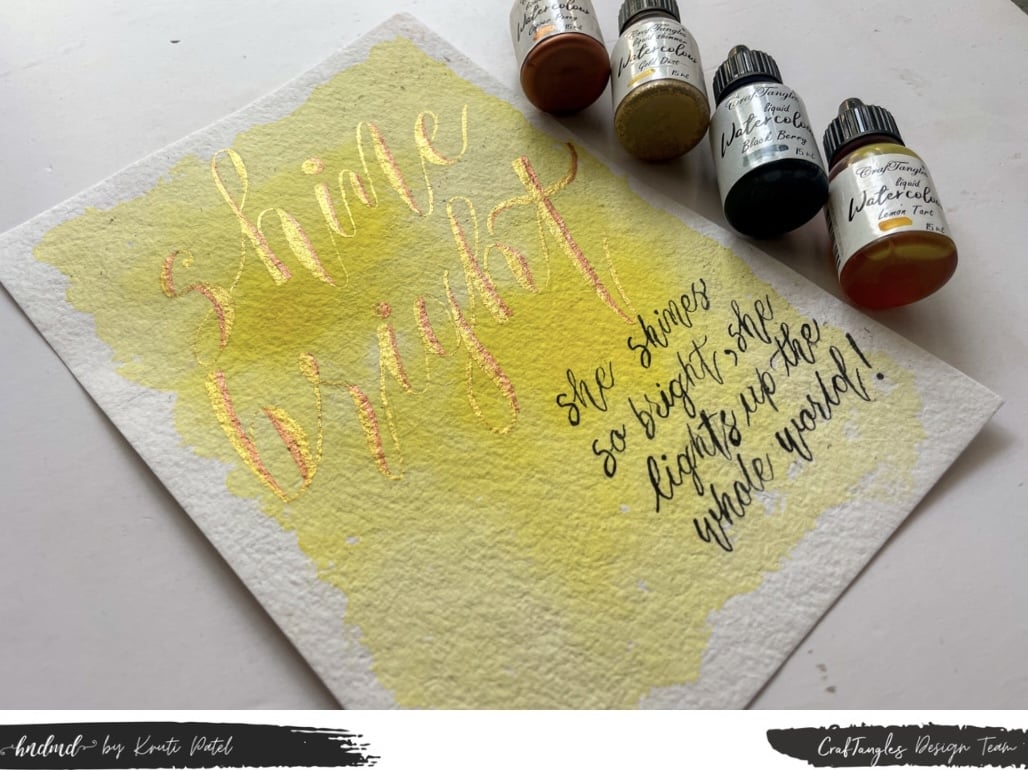 shine
bright
she shines
so bright, she
lights up the
whole world!
Watercolou
15 ml
CrafTangles
liquid shimmer
Watercolou
Gold Dust
15 ml
CrafTangles
liquid
Watercolou
Black Berry
15 ml
CrafTangles
liquid
Watercolou
Lemon Tart
15 ml
hndmd by Kruti Patel
CrafTangles Design Team